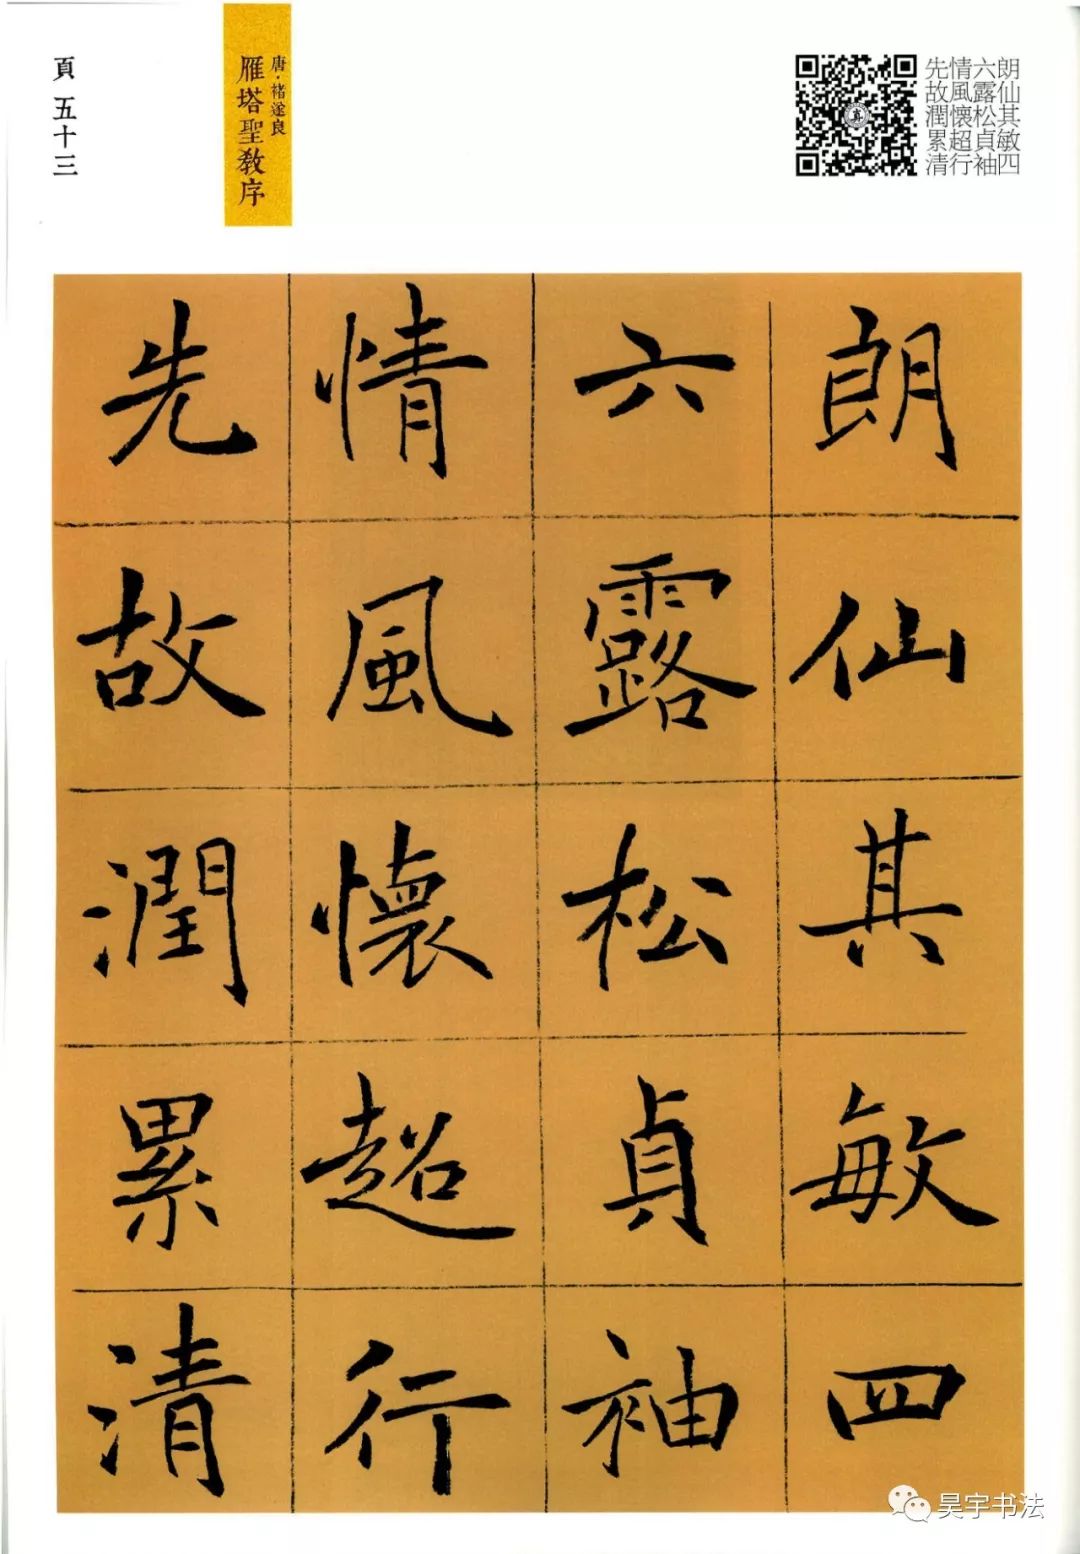 朗仙其敏四
六露松貞袖
情風懷超行
先故潤累清
唐·褚遂良
雁塔聖教序
頁 五十三
朗仙其敏四
六露松貞袖
情風懷超行
先故潤累清
昊宇书法